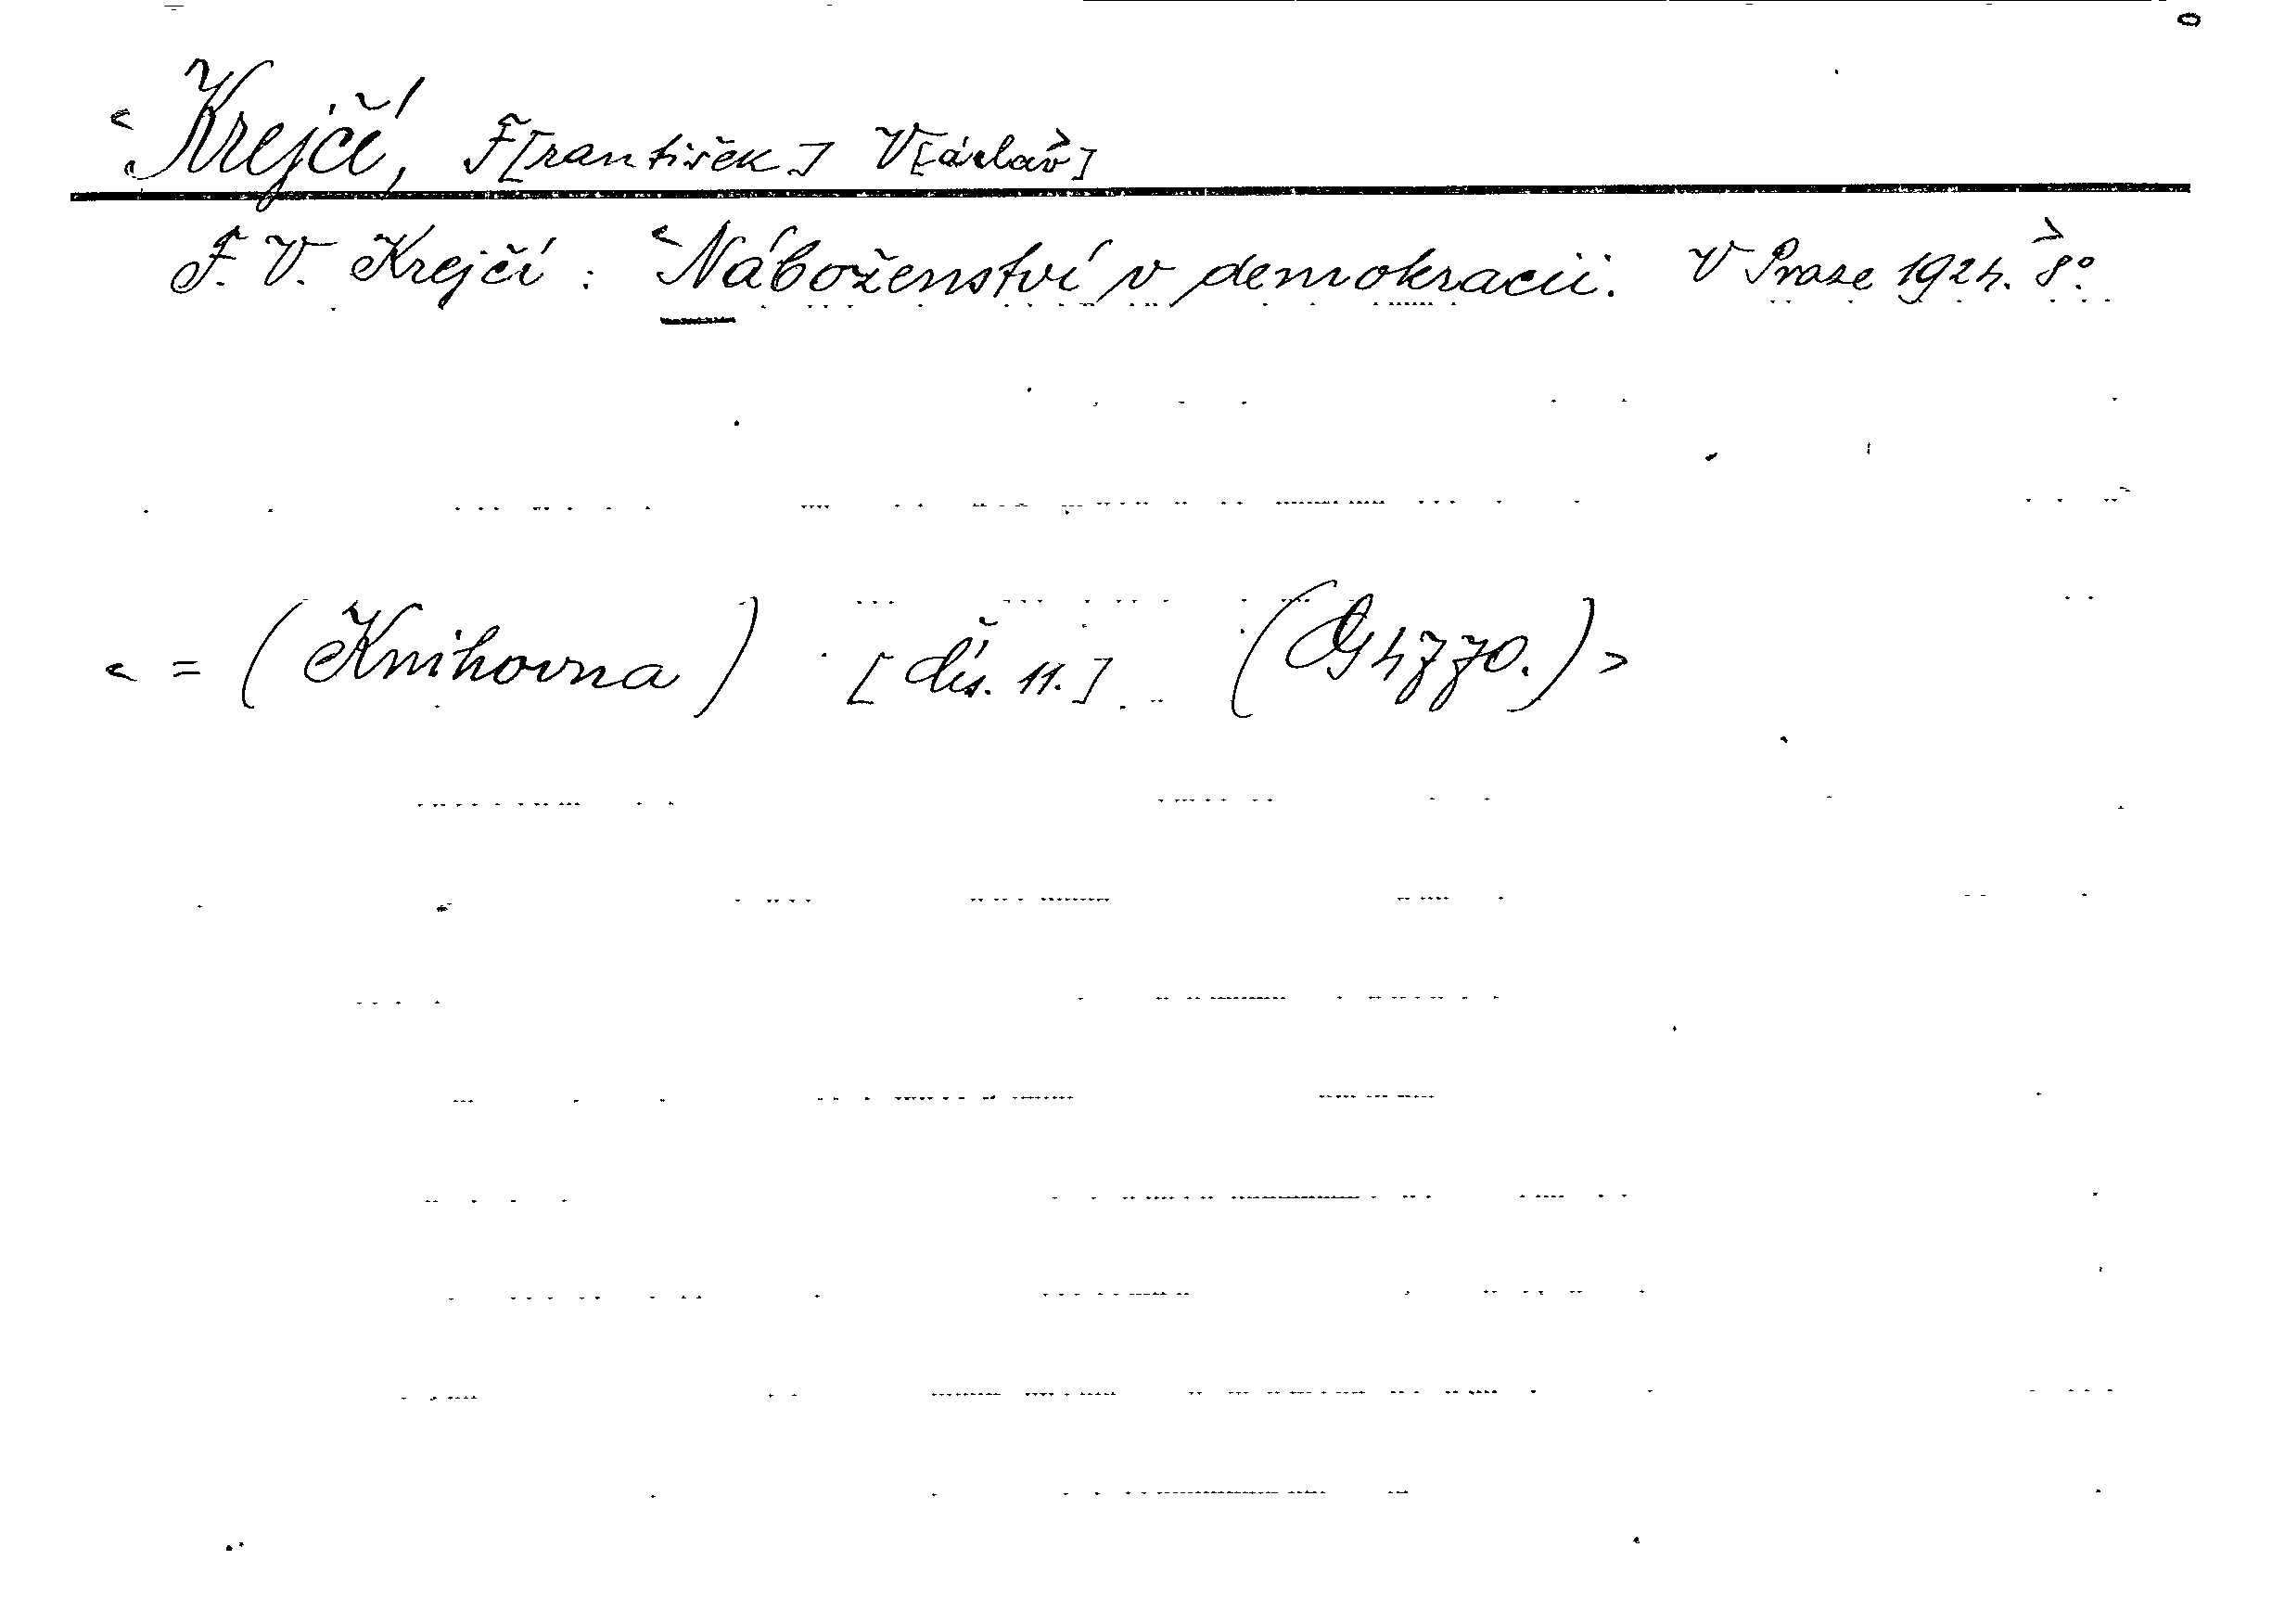 <Krejčí, F[rantišek] V[áclav>]
F. V. Krejčí: <Náboženství v demokracii. V Praze 1924.> 8°.
< = (Knihovna) [Čís. 11.] (G 4770.) >